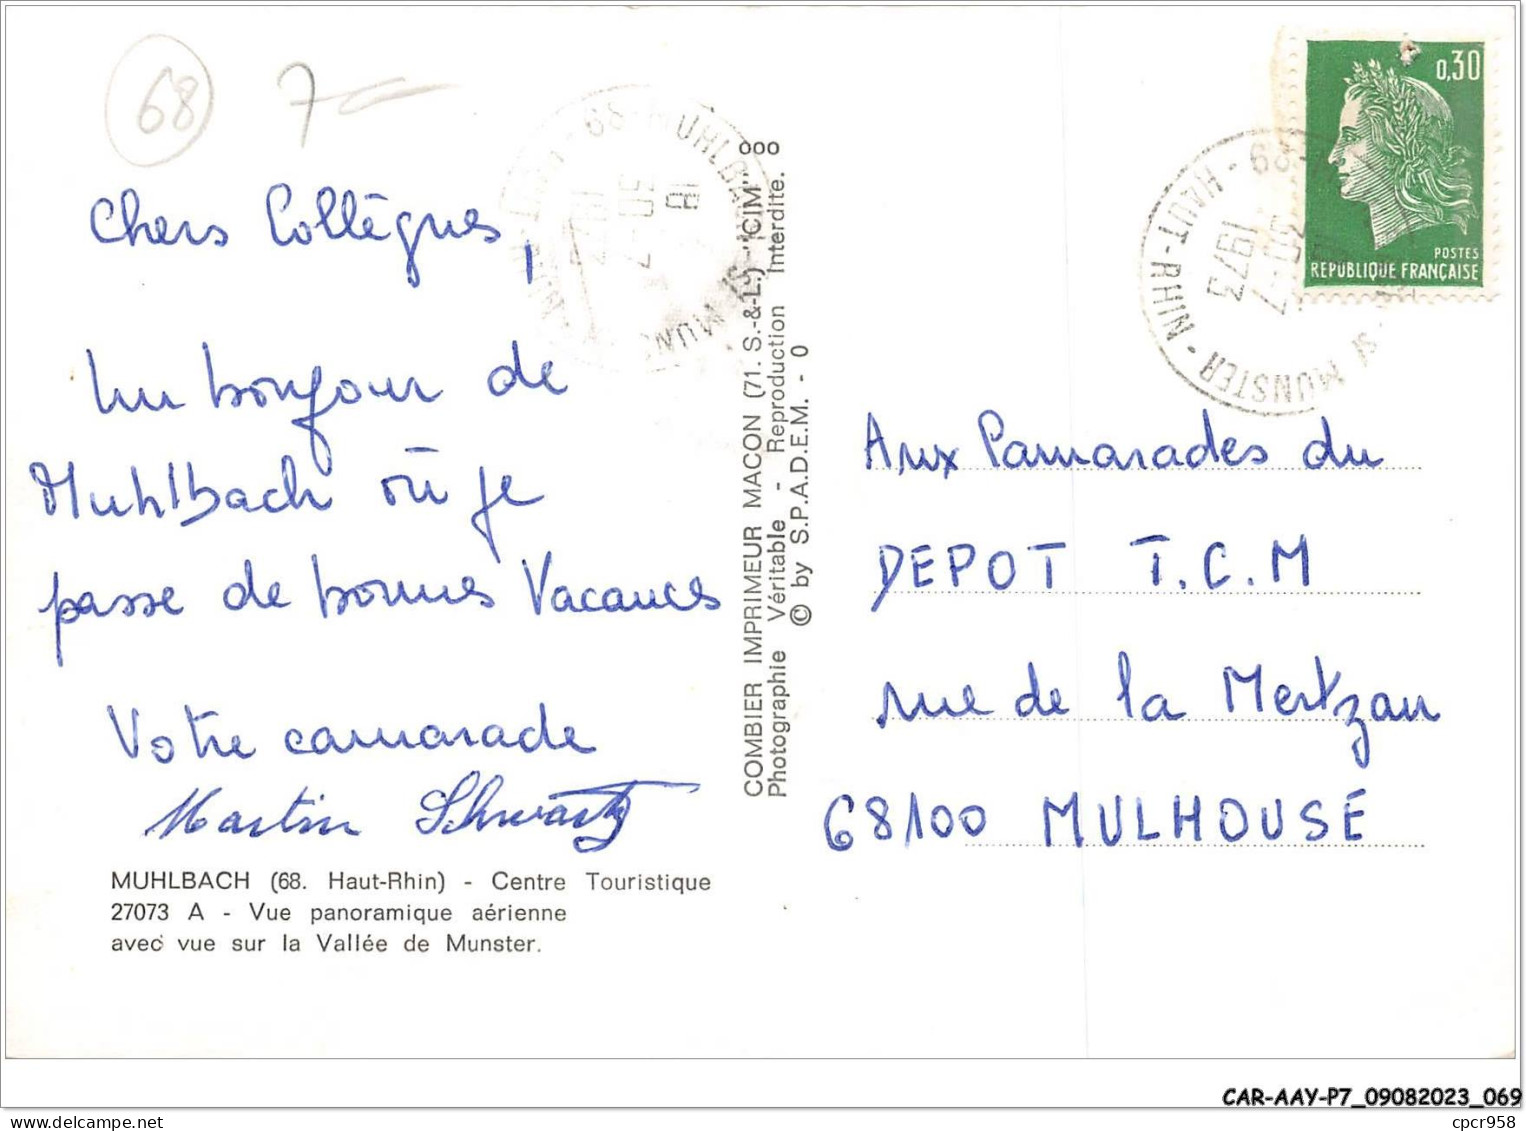 68 7
Chers Collègues,
Un bonjour de
Muhlbach où je
passe de bonnes Vacances
Votre camarade
Martin Schwartz
MUHLBACH (68. Haut-Rhin) - Centre Touristique
27073 A - Vue panoramique aérienne
avec vue sur la Vallée de Munster.
COMBIER IMPRIMEUR MACON (71. S.-&-L.) "CIM" ooo
Photographie Véritable - Reproduction Interdite.
© by S.P.A.D.E.M. - 0
0,30
POSTES
REPUBLIQUE FRANÇAISE
68
HAUT-RHIN
MUNSTER
30-7
1973
Aux Camarades du
DEPOT T.C.M
rue de la Mertzau
68100 MULHOUSE
CAR-AAY-P7_09082023_069
cpcr958